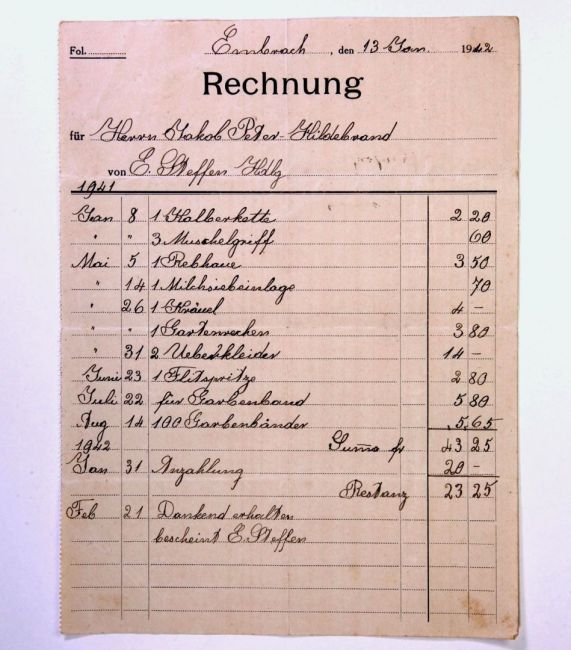 Fol. Embrach, den 13 Jan. 1942
Rechnung
für Herrn Jakob Peter-Hildebrand
von E. Steffen Hdlg
1941
Jan 8 1 Kalberkette 2 20
" " 3 Muschelgriff 60
Mai 5 1 Rebhaue 3 50
" 14 1 Milchsiebeinlage 70
" 26 1 Kräuel 4 –
" " 1 Gartenrechen 3 80
" 31 2 Ueberkleider 14 –
Juni 23 1 Flitspritze 2 80
Juli 22 für Garbenband 5 80
Aug 14 100 Garbenbänder 5.65
1942 Summa fr 43 25
Jan 31 Anzahlung 20 –
Restanz 23 25
Feb 21 Dankend erhalten
bescheint E. Steffen